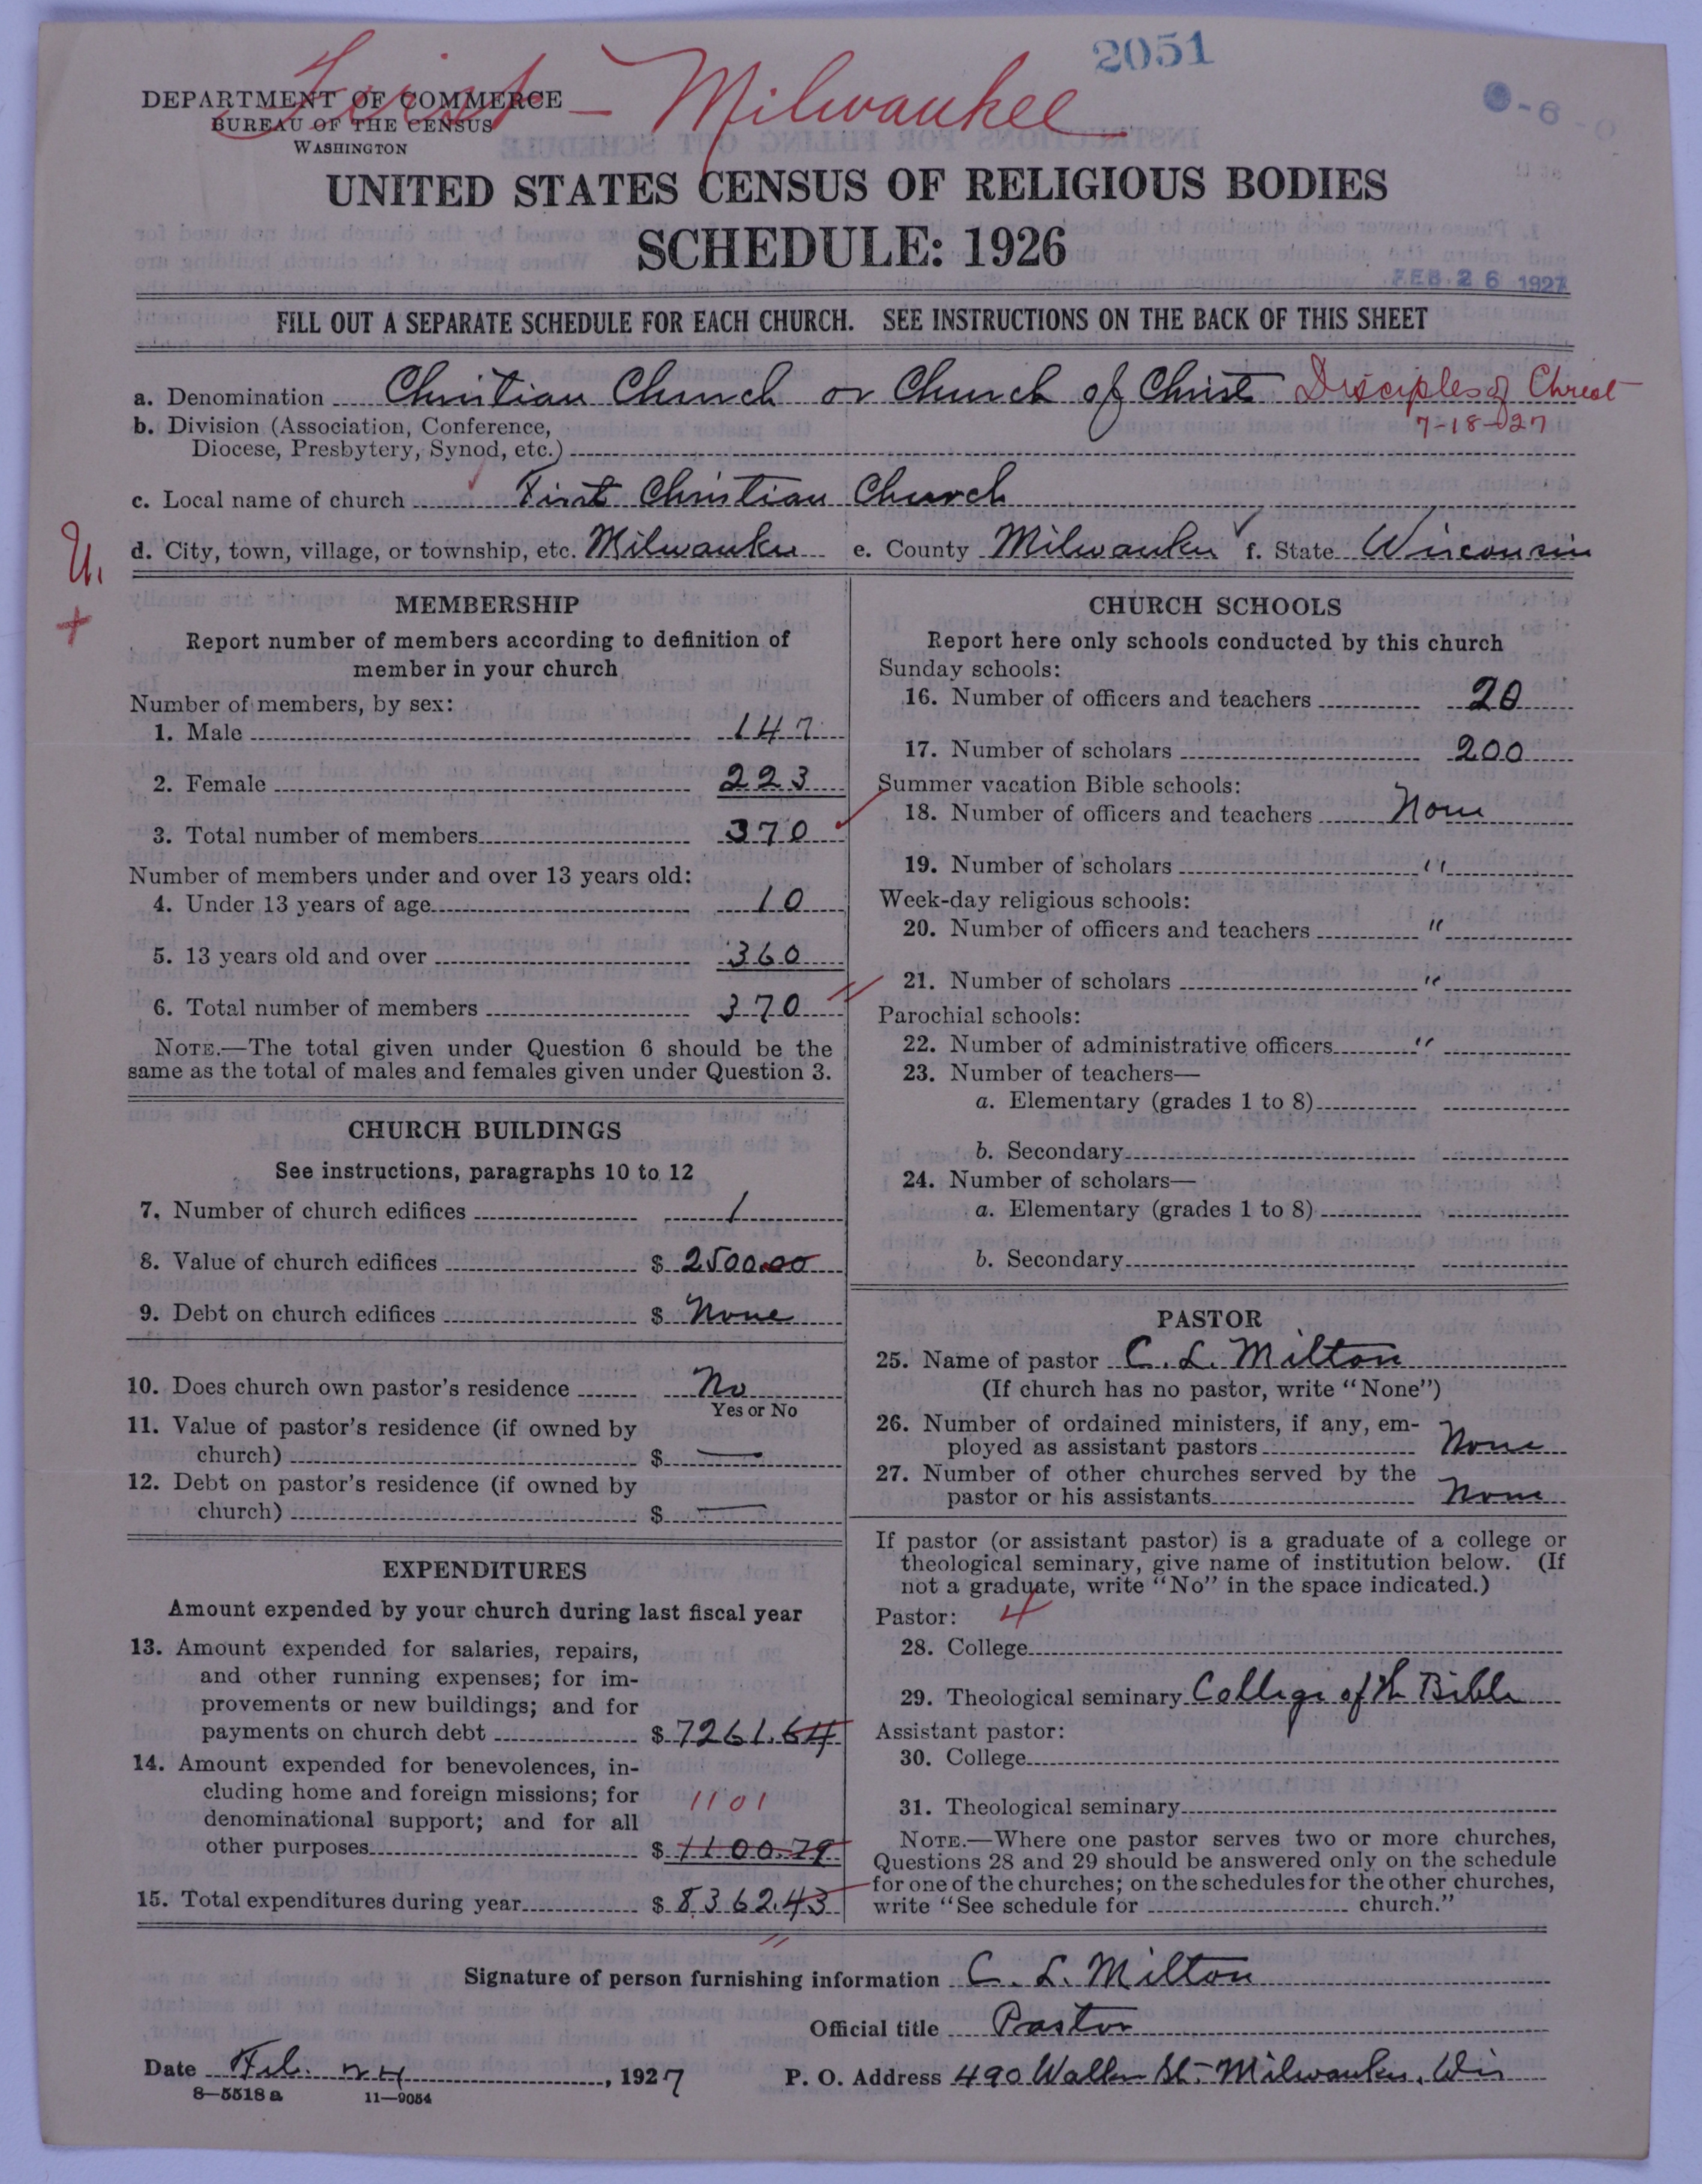 2051
First - Milwaukee
DEPARTMENT OF COMMERCE
BUREAU OF THE CENSUS
WASHINGTON
-6
UNITED STATES CENSUS OF RELIGIOUS BODIES
SCHEDULE: 1926
FEB 26 1927
FILL OUT A SEPARATE SCHEDULE FOR EACH CHURCH. SEE INSTRUCTIONS ON THE BACK OF THIS SHEET
a. Denomination Christian Church or Church of Christ Disciples of Christ
7-18-27
b. Division (Association, Conference,
Diocese, Presbytery, Synod, etc.)
c. Local name of church First Christian Church
d. City, town, village, or township, etc. Milwaukee e. County Milwaukee f. State Wisconsin
U.
+
MEMBERSHIP
Report number of members according to definition of
member in your church
Number of members, by sex:
1. Male 147
2. Female 223
3. Total number of members 370
Number of members under and over 13 years old:
4. Under 13 years of age 10
5. 13 years old and over 360
6. Total number of members 370
NOTE.—The total given under Question 6 should be the
same as the total of males and females given under Question 3.
CHURCH BUILDINGS
See instructions, paragraphs 10 to 12
7. Number of church edifices 1
8. Value of church edifices $ 2500.00
9. Debt on church edifices $ None
10. Does church own pastor's residence No
Yes or No
11. Value of pastor's residence (if owned by
church) $ —
12. Debt on pastor's residence (if owned by
church) $ —
EXPENDITURES
Amount expended by your church during last fiscal year
13. Amount expended for salaries, repairs,
and other running expenses; for im-
provements or new buildings; and for
payments on church debt $ 7261.64
14. Amount expended for benevolences, in-
cluding home and foreign missions; for
denominational support; and for all
1101
other purposes $ 1100.79
15. Total expenditures during year $ 8362.43
CHURCH SCHOOLS
Report here only schools conducted by this church
Sunday schools:
16. Number of officers and teachers 20
17. Number of scholars 200
Summer vacation Bible schools:
18. Number of officers and teachers None
19. Number of scholars "
Week-day religious schools:
20. Number of officers and teachers "
21. Number of scholars "
Parochial schools:
22. Number of administrative officers "
23. Number of teachers—
a. Elementary (grades 1 to 8)
b. Secondary
24. Number of scholars—
a. Elementary (grades 1 to 8)
b. Secondary
PASTOR
25. Name of pastor C. L. Milton
(If church has no pastor, write "None")
26. Number of ordained ministers, if any, em-
ployed as assistant pastors None
27. Number of other churches served by the
pastor or his assistants None
If pastor (or assistant pastor) is a graduate of a college or
theological seminary, give name of institution below. (If
not a graduate, write "No" in the space indicated.)
Pastor: 4
28. College
29. Theological seminary College of the Bible
Assistant pastor:
30. College
31. Theological seminary
NOTE.—Where one pastor serves two or more churches,
Questions 28 and 29 should be answered only on the schedule
for one of the churches; on the schedules for the other churches,
write "See schedule for church."
Signature of person furnishing information C. L. Milton
Official title Pastor
Date Feb. 24, 1927 P. O. Address 490 Walker St- Milwaukee, Wis
8—5518 a 11—9054